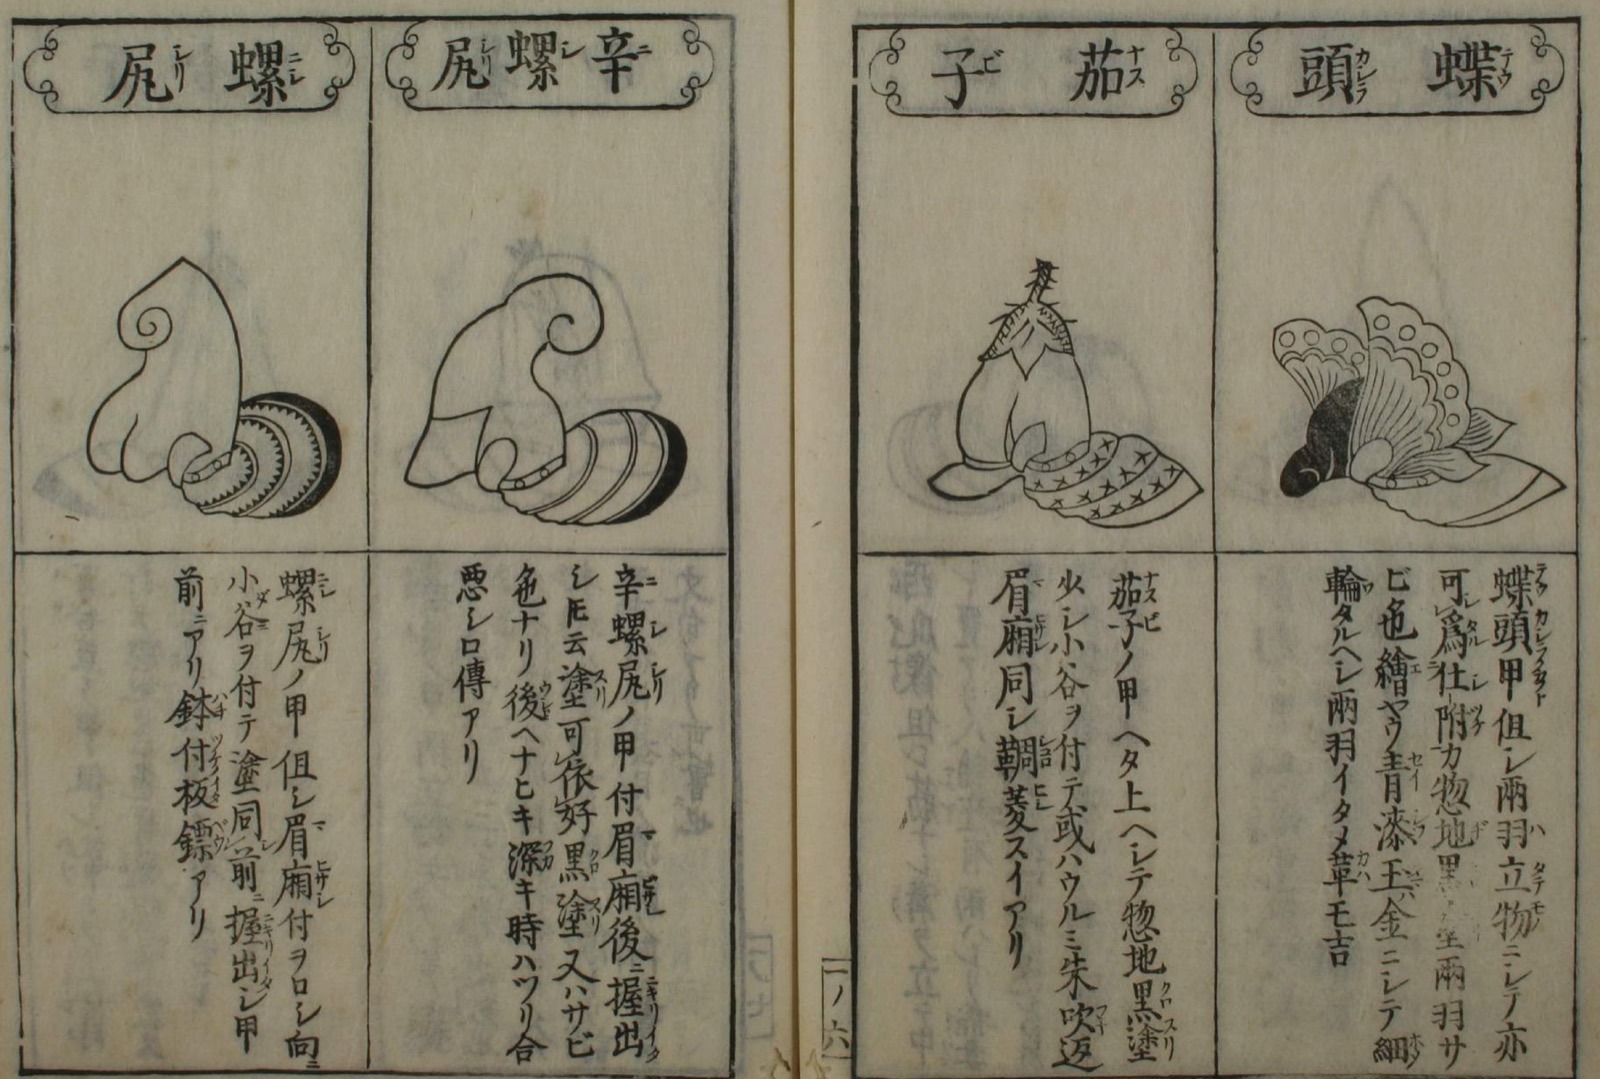 蝶頭
テウ カシラ
蝶頭甲但シ兩羽立物ニシテ亦
可爲仕附カ惣地黒塗兩羽サ
ビ色繪ヤウ青漆玉金ニシテ細
輪タルヘシ兩羽イタメ革モ吉
茄子
ナス ビ
茄子ノ甲ヘタ上ヘシテ惣地黒塗
少シ小谷ヲ付テ或ハウルミ朱吹返
眉廂同シ鞠菱スイアリ
一ノ六
辛螺尻
ニ シ シリ
辛螺尻ノ甲付眉廂後ニ握出
シ𪜈云塗可依好黒塗又ハサビ
色ナリ後ヘナヒキ深キ時ハツリ合
悪シロ傳アリ
螺尻
ニシ シリ
螺尻ノ甲但シ眉廂付ヲロシ向ニ
小谷ヲ付テ塗同シ前ニ握出シ甲
前ニアリ鉢付板鏢アリ